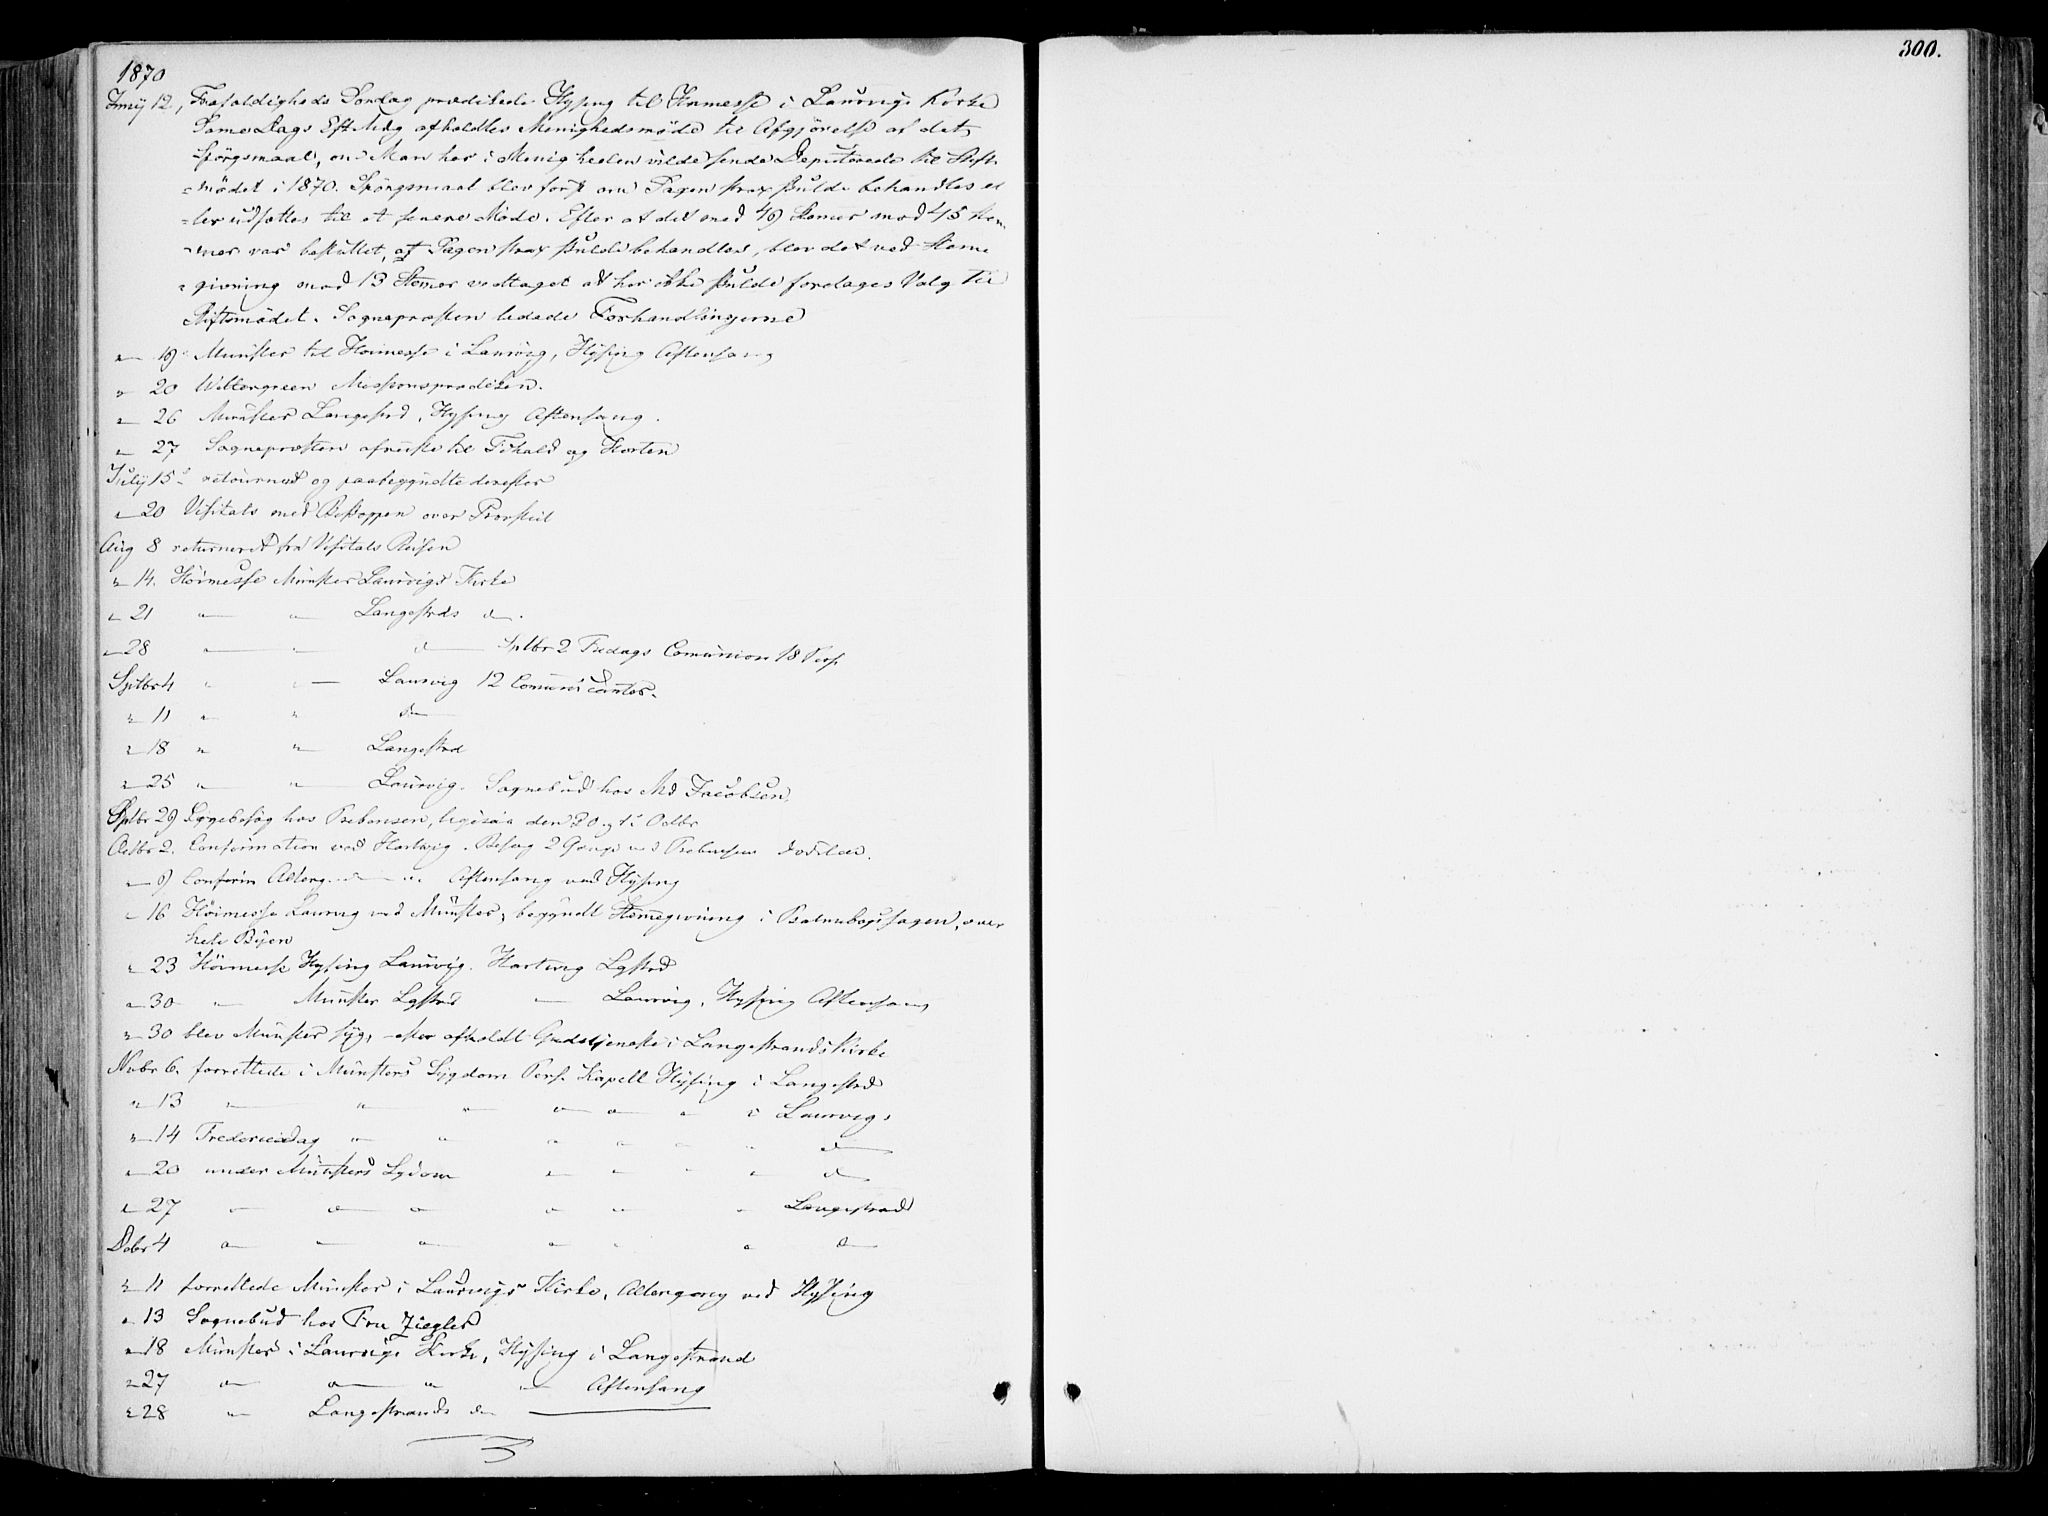 300.
1870
Juny 12, Trefoldigheds Søndag prædikede Hysing til Høimesse i Laurvigs Kirke
Same Dags Eft Mdg afholdtes Menighedsmøde til Afgjørelse af det
Spörgsmaal, om Man her i Menigheden vilde sende Deputerede til Stift-
=mödet i 1870. Spörgsmaal blev först om Sagen strax skulde behandles el
=ler udsættes til et senere Møde. Efter at det med 49 Stemer mod 45 Stem-
=mer var besluttet, at Sagen strax skulde behandles, blev det ved Steme
=givning med 13 Stemer vedtaget at her ikke skulde foretages Valg til
Stiftsmödet. Sognepræsten ledede Forhandlingerne
" 19 Münster til Høimesse i Laurvig, Hysing Aftensang
" 20 Wettergreen Missionsprædiken.
" 26 Münster Langestrd, Hysing Aftensang.
" 27 Sognepræsten afreiste til Fr hald og Horten
July 15 retourned og paabegyndte derefter
" 20 Visitats med Biskoppen over Provstiet
Aug 8 returneret fra Visitats Reisen
" 14. Höimesse Münster Laurvigs Kirke
" 21 " " Langestrds d.
" 28 " " d Sptbr 2 Fredags Comunion 18 Pers
Sptbr 4 " " Laurvig 12 Comunicanter.
" 11 " " d
" 18 " " Langestrd
" 25 " " Laurvig. Sognebud hos Md Jacobsen.
Sptbr 29 Sygebesøg hos Prebensen, ligesaa den 30 og 1 Octbr
Octbr 2. Confirmation ved Hartwig. Besøg 2 Gange ved Prebensens
" 9 Confirm Alterg Aftensang ved Hysing
" 16 Höimesse Laurvig ved Münster, begyndt Stemegivning i over
hele Byen
" 23 Höimesse Hysing Laurvig. Hartwig Lgstrd
" 30 " Münster Lgstrd " Laurvig, Hysing Aftensang
" 30 blev Münster syg, efter afholdt Gudstjeneste i Langestrands Kirke
Novbr 6. forrettede i Münsters Sygdom Pers. Kapell Hysing i Langestrd
" 13 " " " " " " i Laurvig
" 14 Fredericidag " " " " " " d
" 20 under Münsters Sydom " " " " d
" 27 " " " " " " Langestrand
Debr 4 " " " " " " d
" 11 forrettede Münster i Laurvigs Kirke, Altergang ved Hysing
" 13 Sognebud hos Fru Ziegler
" 18 Münster i Laurvigs Kirke, Hysing i Langestrand
" 27 " " " " Aftensang
" 28 " Langestrands d